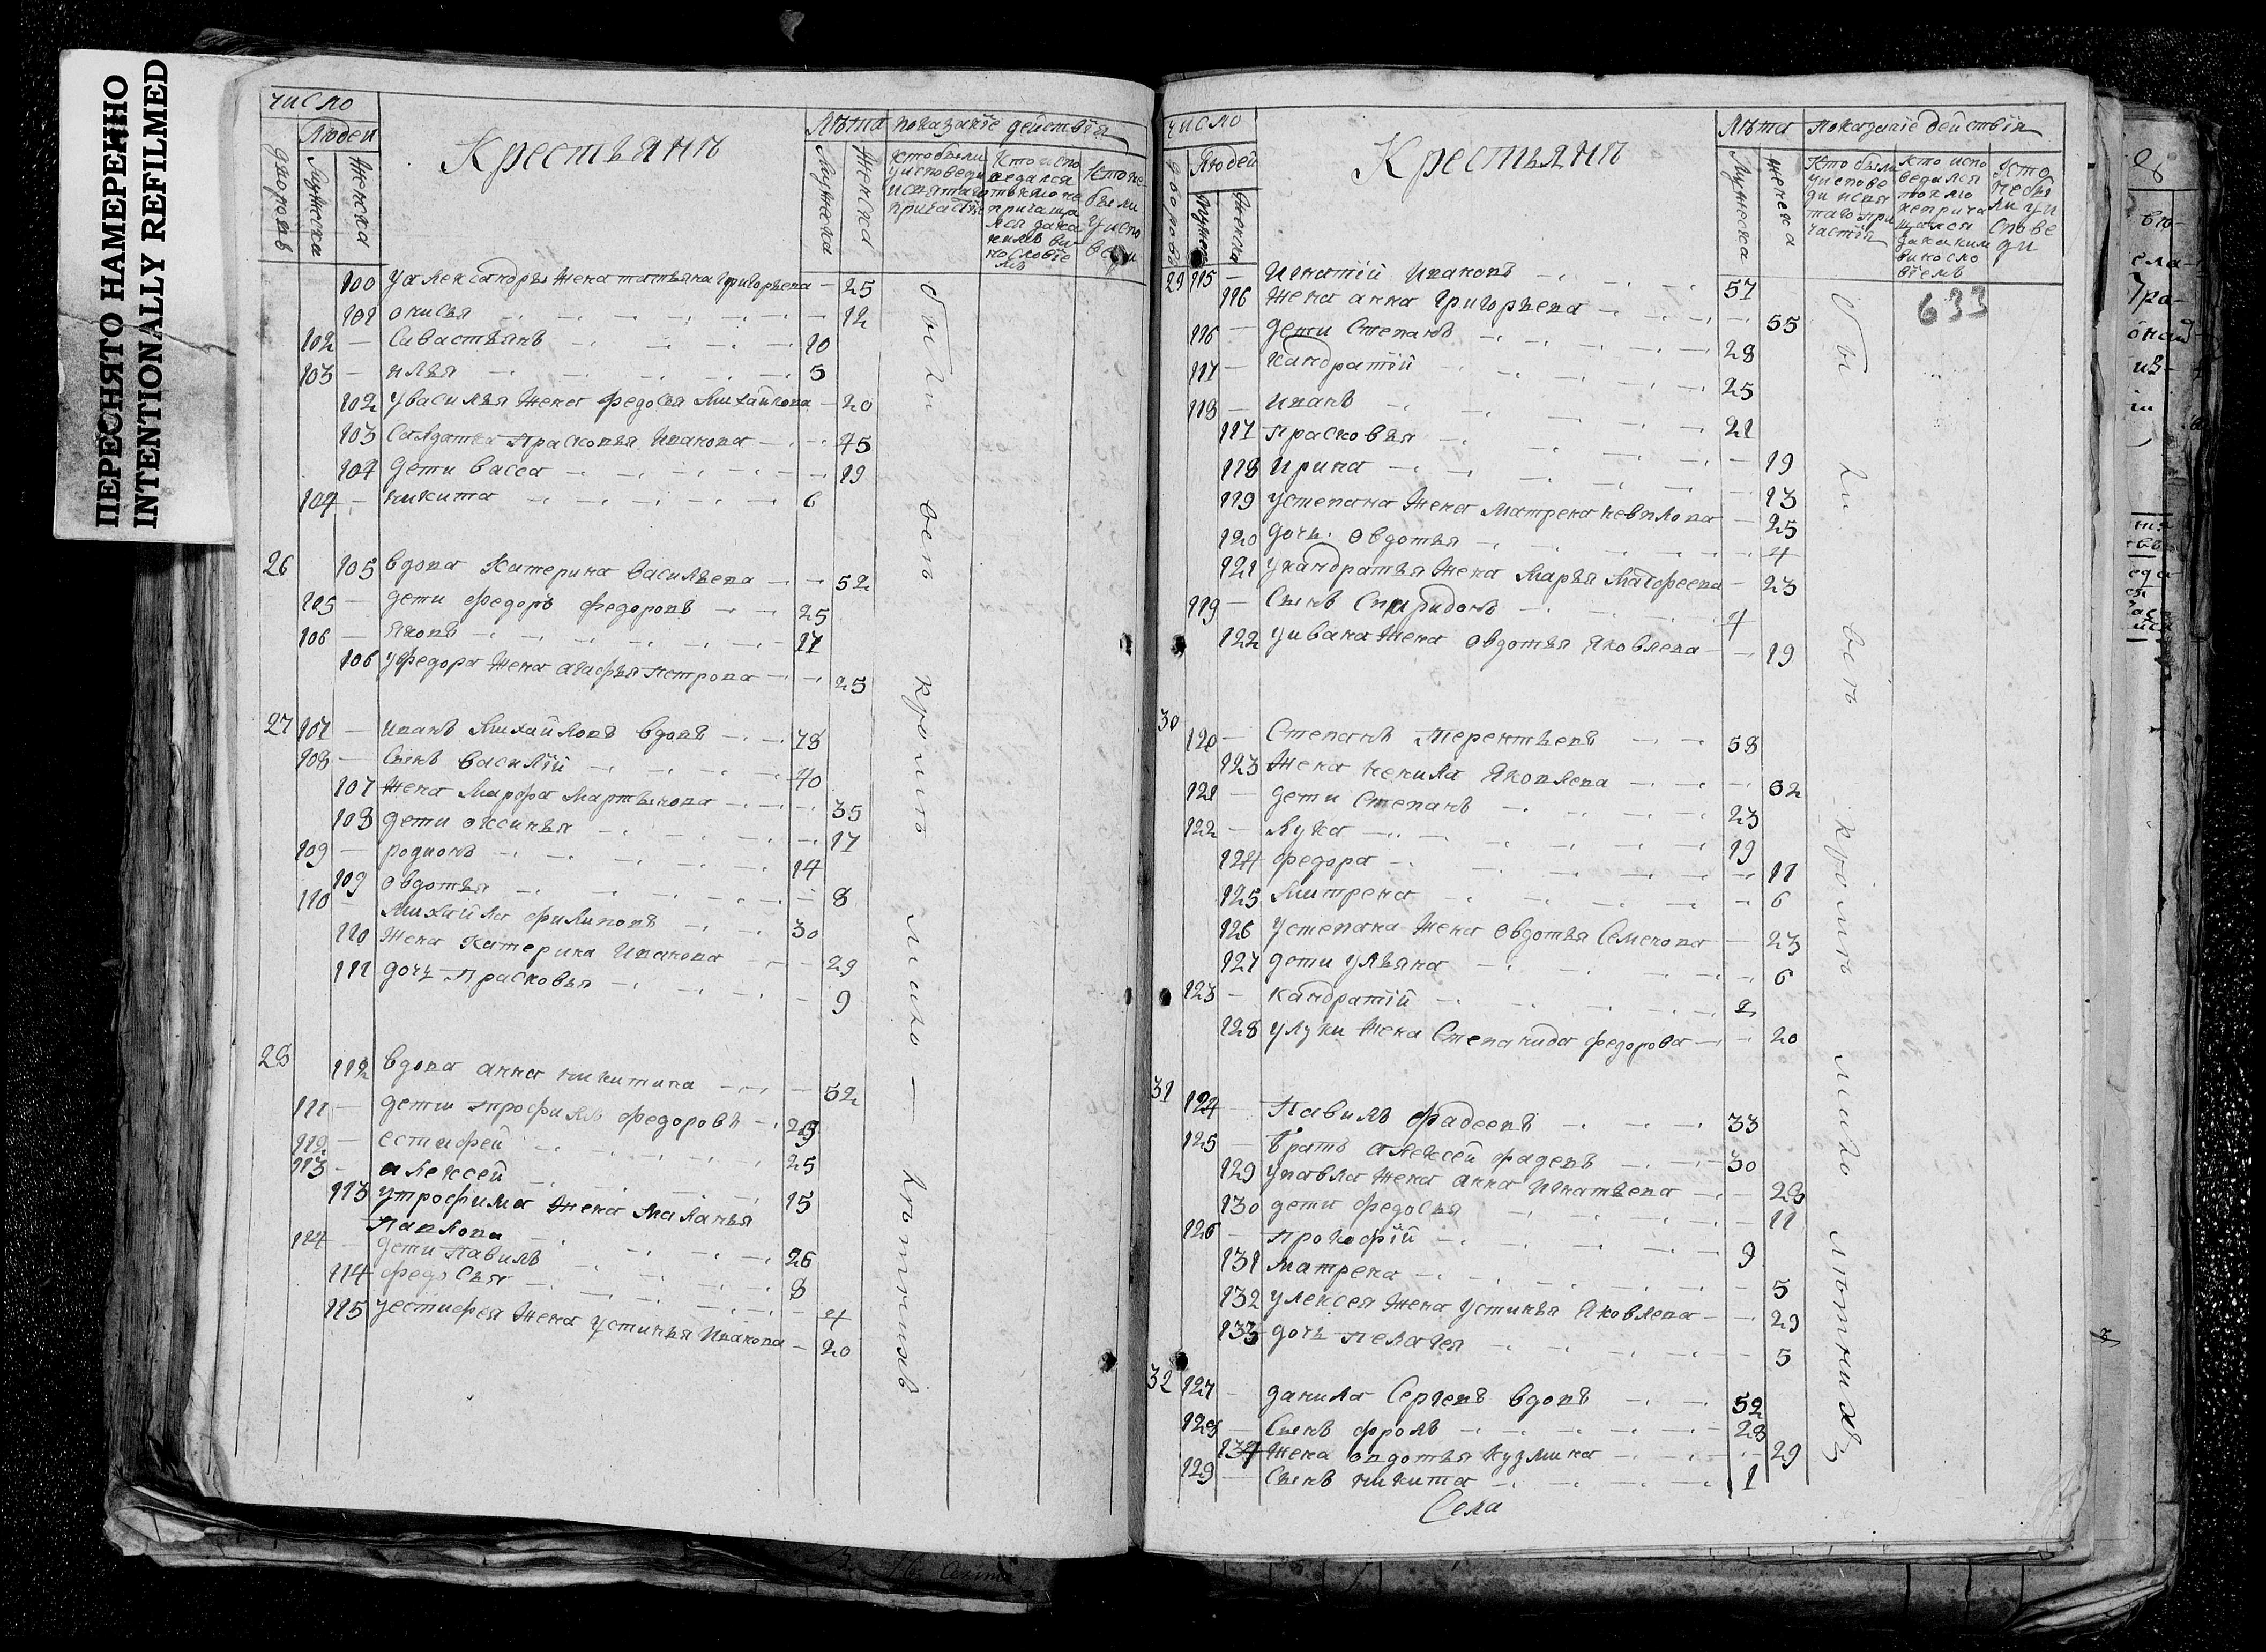 ПЕРЕСНЯТО НАМЕРЕННО
INTENTIONALLY REFILMED
число
Людей
дворовъ
Мужеска
Женска
Крестьянъ
Лѣта
показанїе действїя
Мужеска
Женска
кто были
у исповеди
и святаго
причастїя
Кто испо
ведался
токмо не
причаща
лся
кто не
были
у испо
веди
100 у александры жена татьяна григорьева — 25
101 онисья 12
102 — Савастьянъ 10
103 — илья 5
102 у василья жена федосья Михайлова — 20
103 Салдатка Прасковья Иванова 45
104 дети васса 19
104 — никита 6
26 105 вдова Катерина васильева 52
105 — дети федоръ федоровъ 25
106 — яковъ 17
106 у федора жена агафья петрова 25
27 107 — иванъ Михайловъ вдовъ 78
108 — Сынъ василїй 40
107 жена Марфа Мартынова 35
108 дети оксинья 17
109 — родионъ 14
109 овдотья 8
110 Михайла филиповъ 30
110 жена Катерина Иванова 29
111 дочь Прасковья 9
28 112 вдова анна никитина 52
111 — дети трофимъ федоровъ 29
112 — естифей 25
113 — алексей 15
113 у трофима жена маланья
Павлова 26
114 — дети Павилъ 8
114 федосья 4
115 у естифея жена устинья Иванова — 20
были
всѣ
кромѣ
мало
лѣтнихъ
число
дворовъ
Людей
Мужеск
Женска
Крестьянъ
Лѣта
показанїе действїя
Мужеска
женска
Кто были
у испове
ди и свя
таго при
частїя
кто испо
ведался
токмо
неприча
щался
за каким
виносло
вїемъ
кто
небы
ли у и
спове
ди
633
29 115 — Игнатїй Ивановъ 57
116 жена анна григорьева 55
116 — дети Степанъ 28
117 — кандратїй 25
118 — иванъ 21
117 прасковья 19
118 ирина 13
119 у степана жена матрена — 25
120 дочь овдотья 4
121 у кандратья жена Марья Матфеева — 23
119 — Сынъ Спиридонъ 4
122 у ивана жена овдотья Яковлева — 19
30 120 — Степанъ Терентьевъ 58
123 жена ненила Яковлева 52
121 — дети Степанъ 23
122 — Лука 19
124 федора 11
125 Митрена 6
126 у степана жена овдотья Семенова — 23
127 дети ульяна 6
123 — кандратїй 2
128 у луки жена Степанида федорова — 20
31 124 — Павилъ фадеевъ 33
125 — братъ алексей фадевъ 30
129 у павла жена анна Игнатьева — 28
130 дети федосья 11
126 — Прокофїй 9
131 матрена 5
132 у алексея жена устинья Яковлева — 29
133 дочь пелагея 5
32 127 — данила Сергевъ вдовъ 52
128 — Сынъ фролъ 28
134 жена овдотья кузмина 29
129 — Сынъ никита 1
Села
были
всѣ
кромѣ
мало
лѣтнихъ